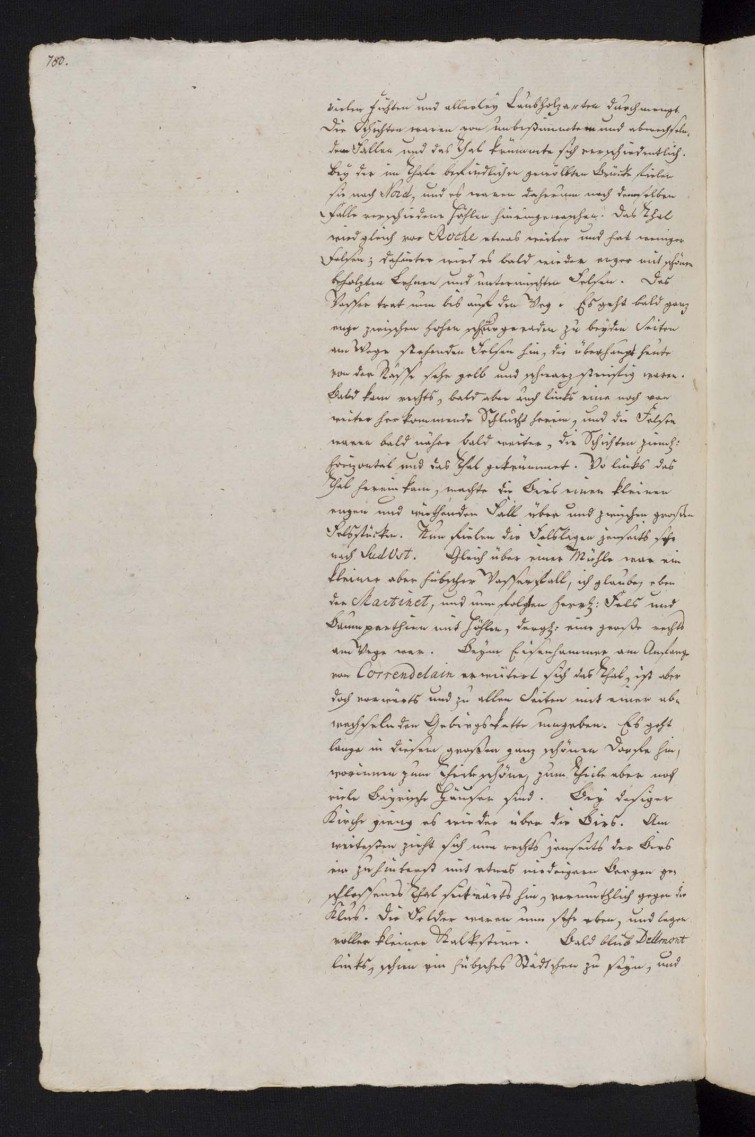 780.
vielen Fichten und allerley Laubholzarten durchmengt.
Die Schichten waren von unbestimmtem und abwechseln-
dem Fallen und das Thal krümmte sich verschiedentlich.
Bey der im Thale befindlichen gewölbten Brück fielen
sie nach Nord, und es waren daherum nach demselben
Falle verschiedene Höhlen hineingewaschen. Das Thal
wird gleich vor Roche etwas weiter und hat weniger
Felsen; dahinter wird es bald wieder enger mit schönen
beholzten Lehnen und untermischten Felsen. Das
Wasser trat nun bis auf den Weg. Es geht bald ganz
enge zwischen hohen schnurgeraden zu beyden Seiten
am Wege stehenden Felsen hin, die überhaupt heute
von der Nässe sehr gelb und schwarz streifig waren.
Bald kam rechts, bald aber auch links eine noch von
weiter herkommende Schlucht herein, und die Felsen
waren bald näher bald weiter, die Schichten ziemh:
horizontal und das Thal gekrümmt. Wo links das
Thal hereinkam, machte die Birs einen kleinen
engen und wüthenden Fall über und zwischen großen
Felsstücken. Nun fielen die Felslagen jenseits sehr
nach SudOst. Gleich über einer Mühle war ein
kleiner aber hübscher Wasserfall, ich glaube, eben
der Martinet, und nun folgten herrl: Fels und
Baumparthien mit Höhlen, dergl: eine große rechts
am Wege war. Beym Eisenhammer am Anfange
von Correndelain erweitert sich das Thal, ist aber
doch vorwärts und zu allen Seiten mit einer ab-
wechselnden Gebirgskette umgeben. Es geht
lange in diesem großen ganz schönen Dorfe hin,
worinnen zum Theil schöne, zum Theile aber noch
viele Bäyrische Häuser sind. Bey dasiger
Kirche gieng es wieder über die Birs. Am
weitesten zieht sich nun rechts jenseits der Birs
ein zuhinterst mit etwas niedrigern Bergen ge-
schlossenes Thal seitwärts hin, vermuthlich gegen die
Klus. Die Felder waren nun sehr eben, und lagen
voller kleiner Kalksteine. Bald blieb Dellmont
links, schien ein hübsches Städtchen zu seyn, und